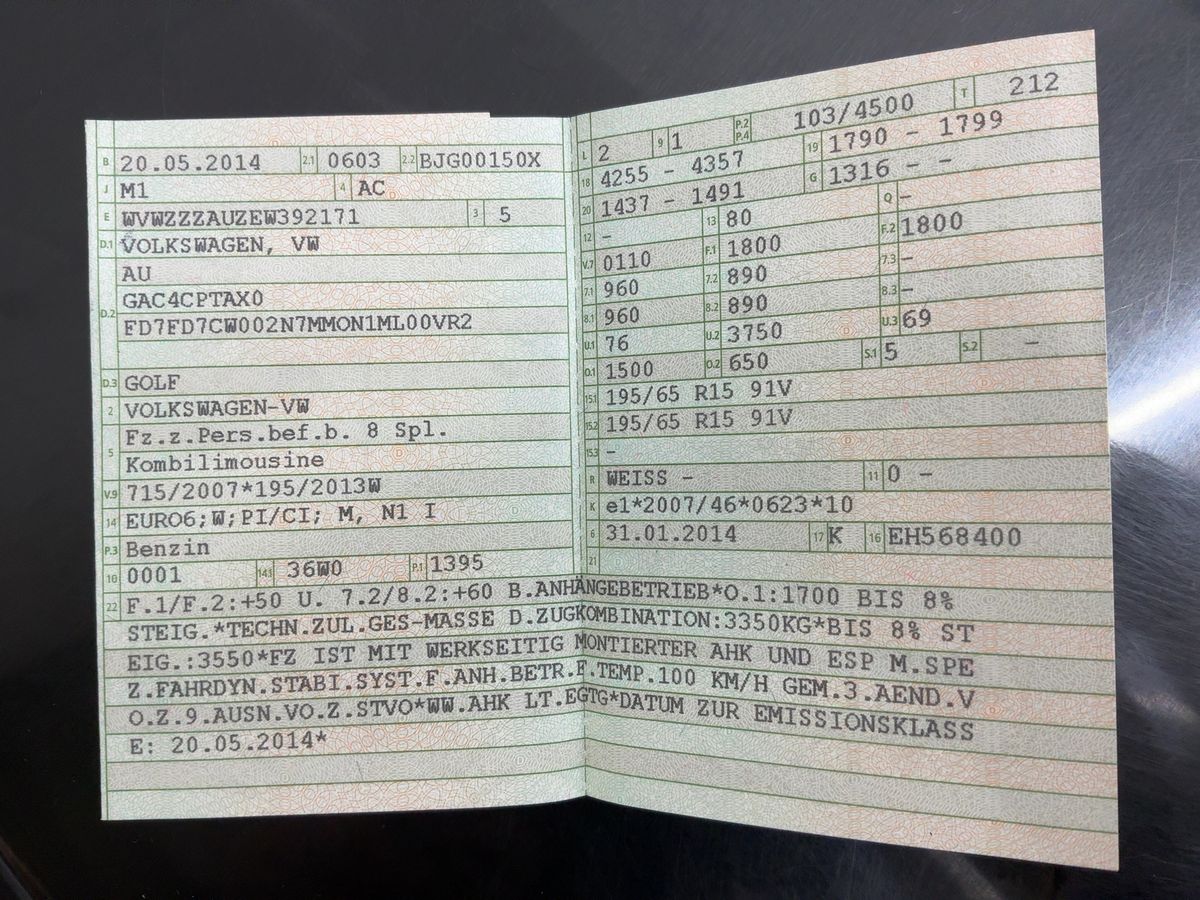 B 20.05.2014 2.1 0603 2.2 BJG00150X
J M1 4 AC
E WVWZZZAUZEW392171 3 5
D.1 VOLKSWAGEN, VW
AU
D.2 GAC4CPTAX0
FD7FD7CW002N7MMON1ML00VR2
D.3 GOLF
2 VOLKSWAGEN-VW
5 Fz.z.Pers.bef.b. 8 Spl.
Kombilimousine
V.9 715/2007*195/2013W
14 EURO6;W;PI/CI; M, N1 I
P.3 Benzin
10 0001 14.1 36W0 P.1 1395
L 2 9 1 P.2 P.4 103/4500 T 212
18 4255 - 4357 19 1790 - 1799
20 1437 - 1491 G 1316 - -
12 - 13 80 Q -
V.7 0110 F.1 1800 F.2 1800
7.1 960 7.2 890 7.3 -
8.1 960 8.2 890 8.3 -
U.1 76 U.2 3750 U.3 69
O.1 1500 O.2 650 S.1 5 S.2 -
15.1 195/65 R15 91V
15.2 195/65 R15 91V
15.3 -
R WEISS - 11 0 -
K e1*2007/46*0623*10
6 31.01.2014 17 K 16 EH568400
21
22 F.1/F.2:+50 U. 7.2/8.2:+60 B.ANHÄNGEBETRIEB*O.1:1700 BIS 8%
STEIG.*TECHN.ZUL.GES-MASSE D.ZUGKOMBINATION:3350KG*BIS 8% ST
EIG.:3550*FZ IST MIT WERKSEITIG MONTIERTER AHK UND ESP M.SPE
Z.FAHRDYN.STABI.SYST.F.ANH.BETR.F.TEMP.100 KM/H GEM.3.AEND.V
O.Z.9.AUSN.VO.Z.STVO*WW.AHK LT.EGTG*DATUM ZUR EMISSIONSKLASS
E: 20.05.2014*